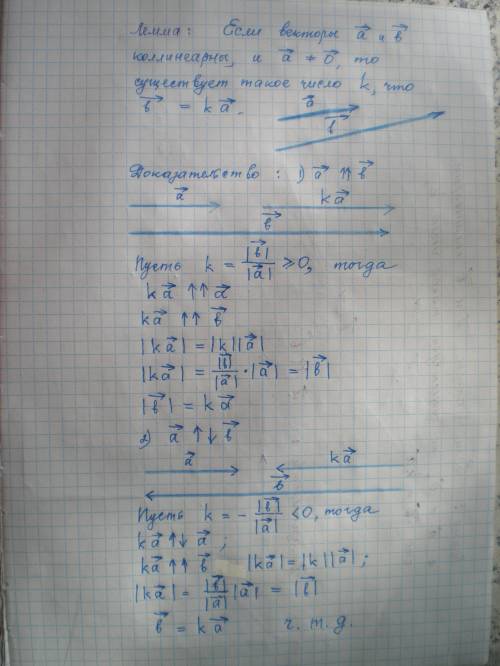 Лемма: Если векторы a⃗ и b⃗
коллинеарны, и a⃗ ≠ 0⃗, то
существует такое число k, что
b⃗ = k a⃗.
a⃗
b⃗
Доказательство: 1) a⃗ ↑↑ b⃗
a⃗ k a⃗
b⃗
Пусть k = |b⃗|/|a⃗| ⩾ 0, тогда
k a⃗ ↑↑ a⃗
k a⃗ ↑↑ b⃗
|k a⃗| = |k||a⃗|
|k a⃗| = |b⃗|/|a⃗| · |a⃗| = |b⃗|
|b⃗| = k a⃗
2) a⃗ ↑↓ b⃗
a⃗ k a⃗
b⃗
Пусть k = - |b⃗|/|a⃗| < 0, тогда
k a⃗ ↑↓ a⃗;
k a⃗ ↑↑ b⃗ |k a⃗| = |k||a⃗|;
|k a⃗| = |b⃗|/|a⃗| |a⃗| = |b⃗|
b⃗ = k a⃗ ч. т. д.